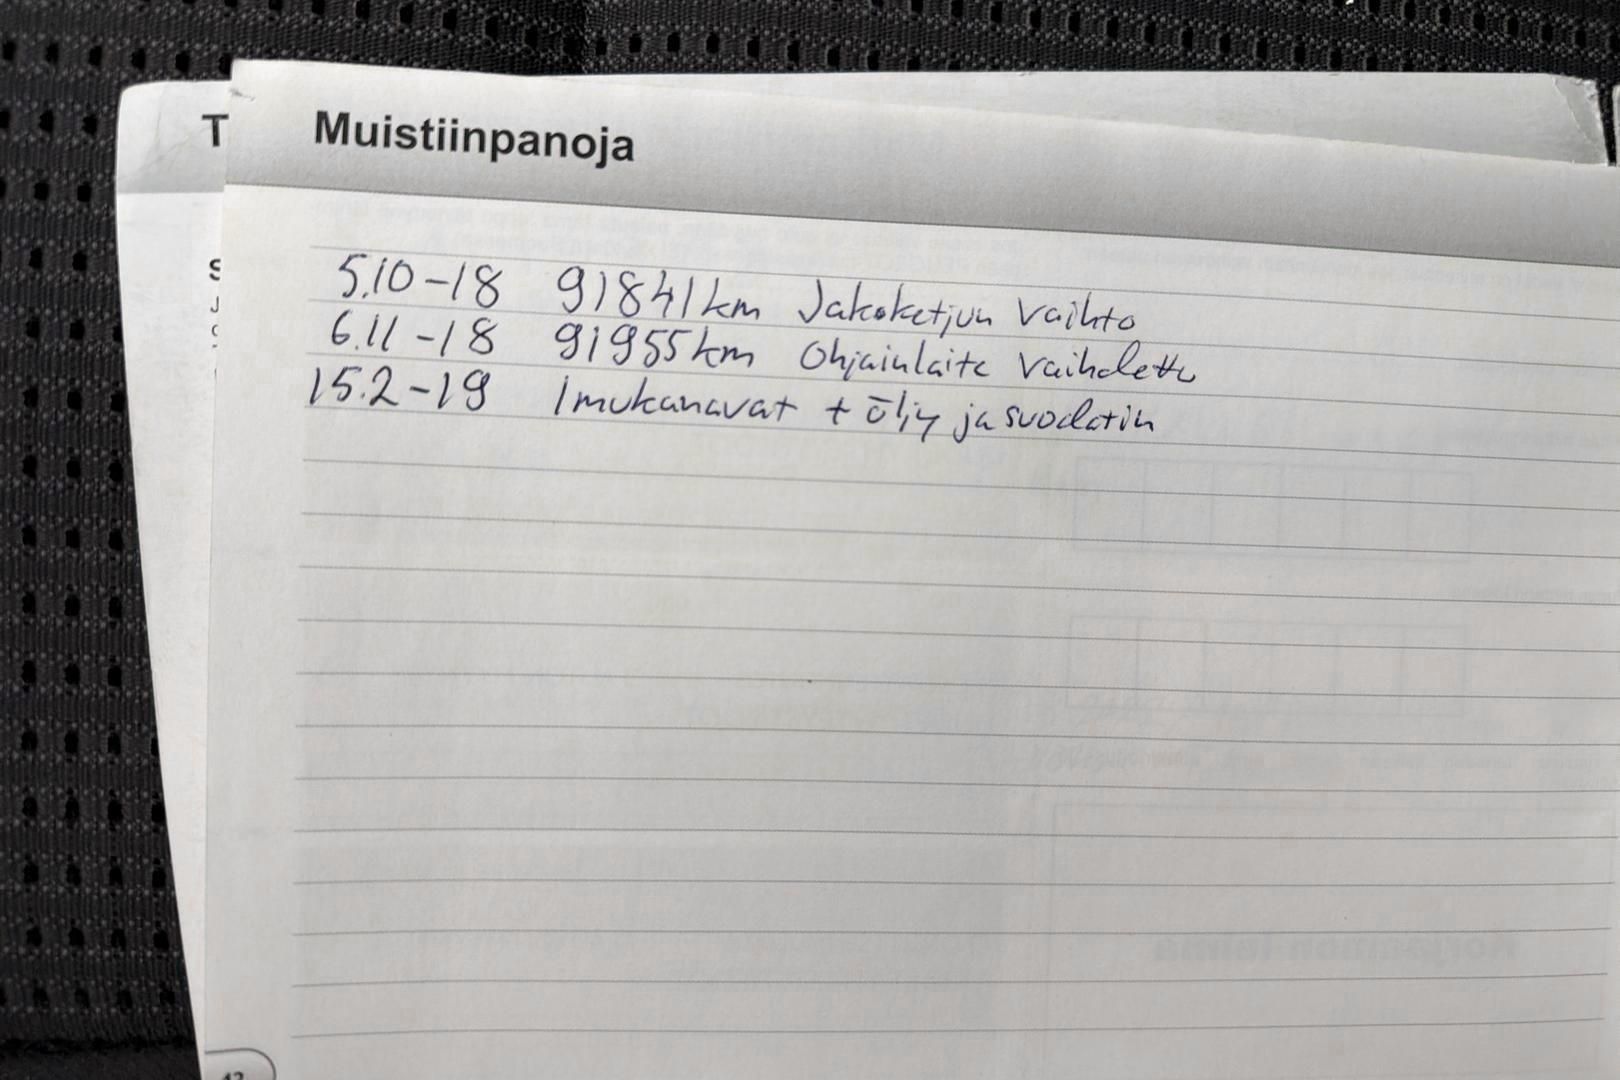 T Muistiinpanoja
5.10-18 91841km Jakoketjun vaihto
6.11-18 91955km Ohjainlaite vaihdettu
15.2-19 Imukanavat + öljy ja suodatin